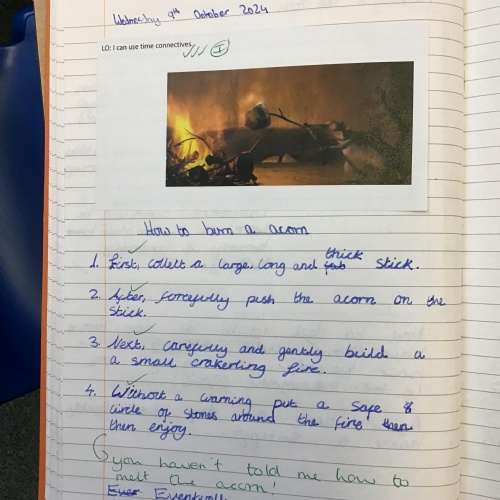 Wednesday 9th October 2024
LO: I can use time connectives.
I
How to burn a acorn
1. First, collect a large, long and thick stick.
2. After, forcefully push the acorn on the
stick.
3. Next, carefully and gently build a
a small crakerling fire.
4. Without a warning put a safe
circle of stones around the fire then
then enjoy.
you haven't told me how to
melt the acorn!
Ever Eventually